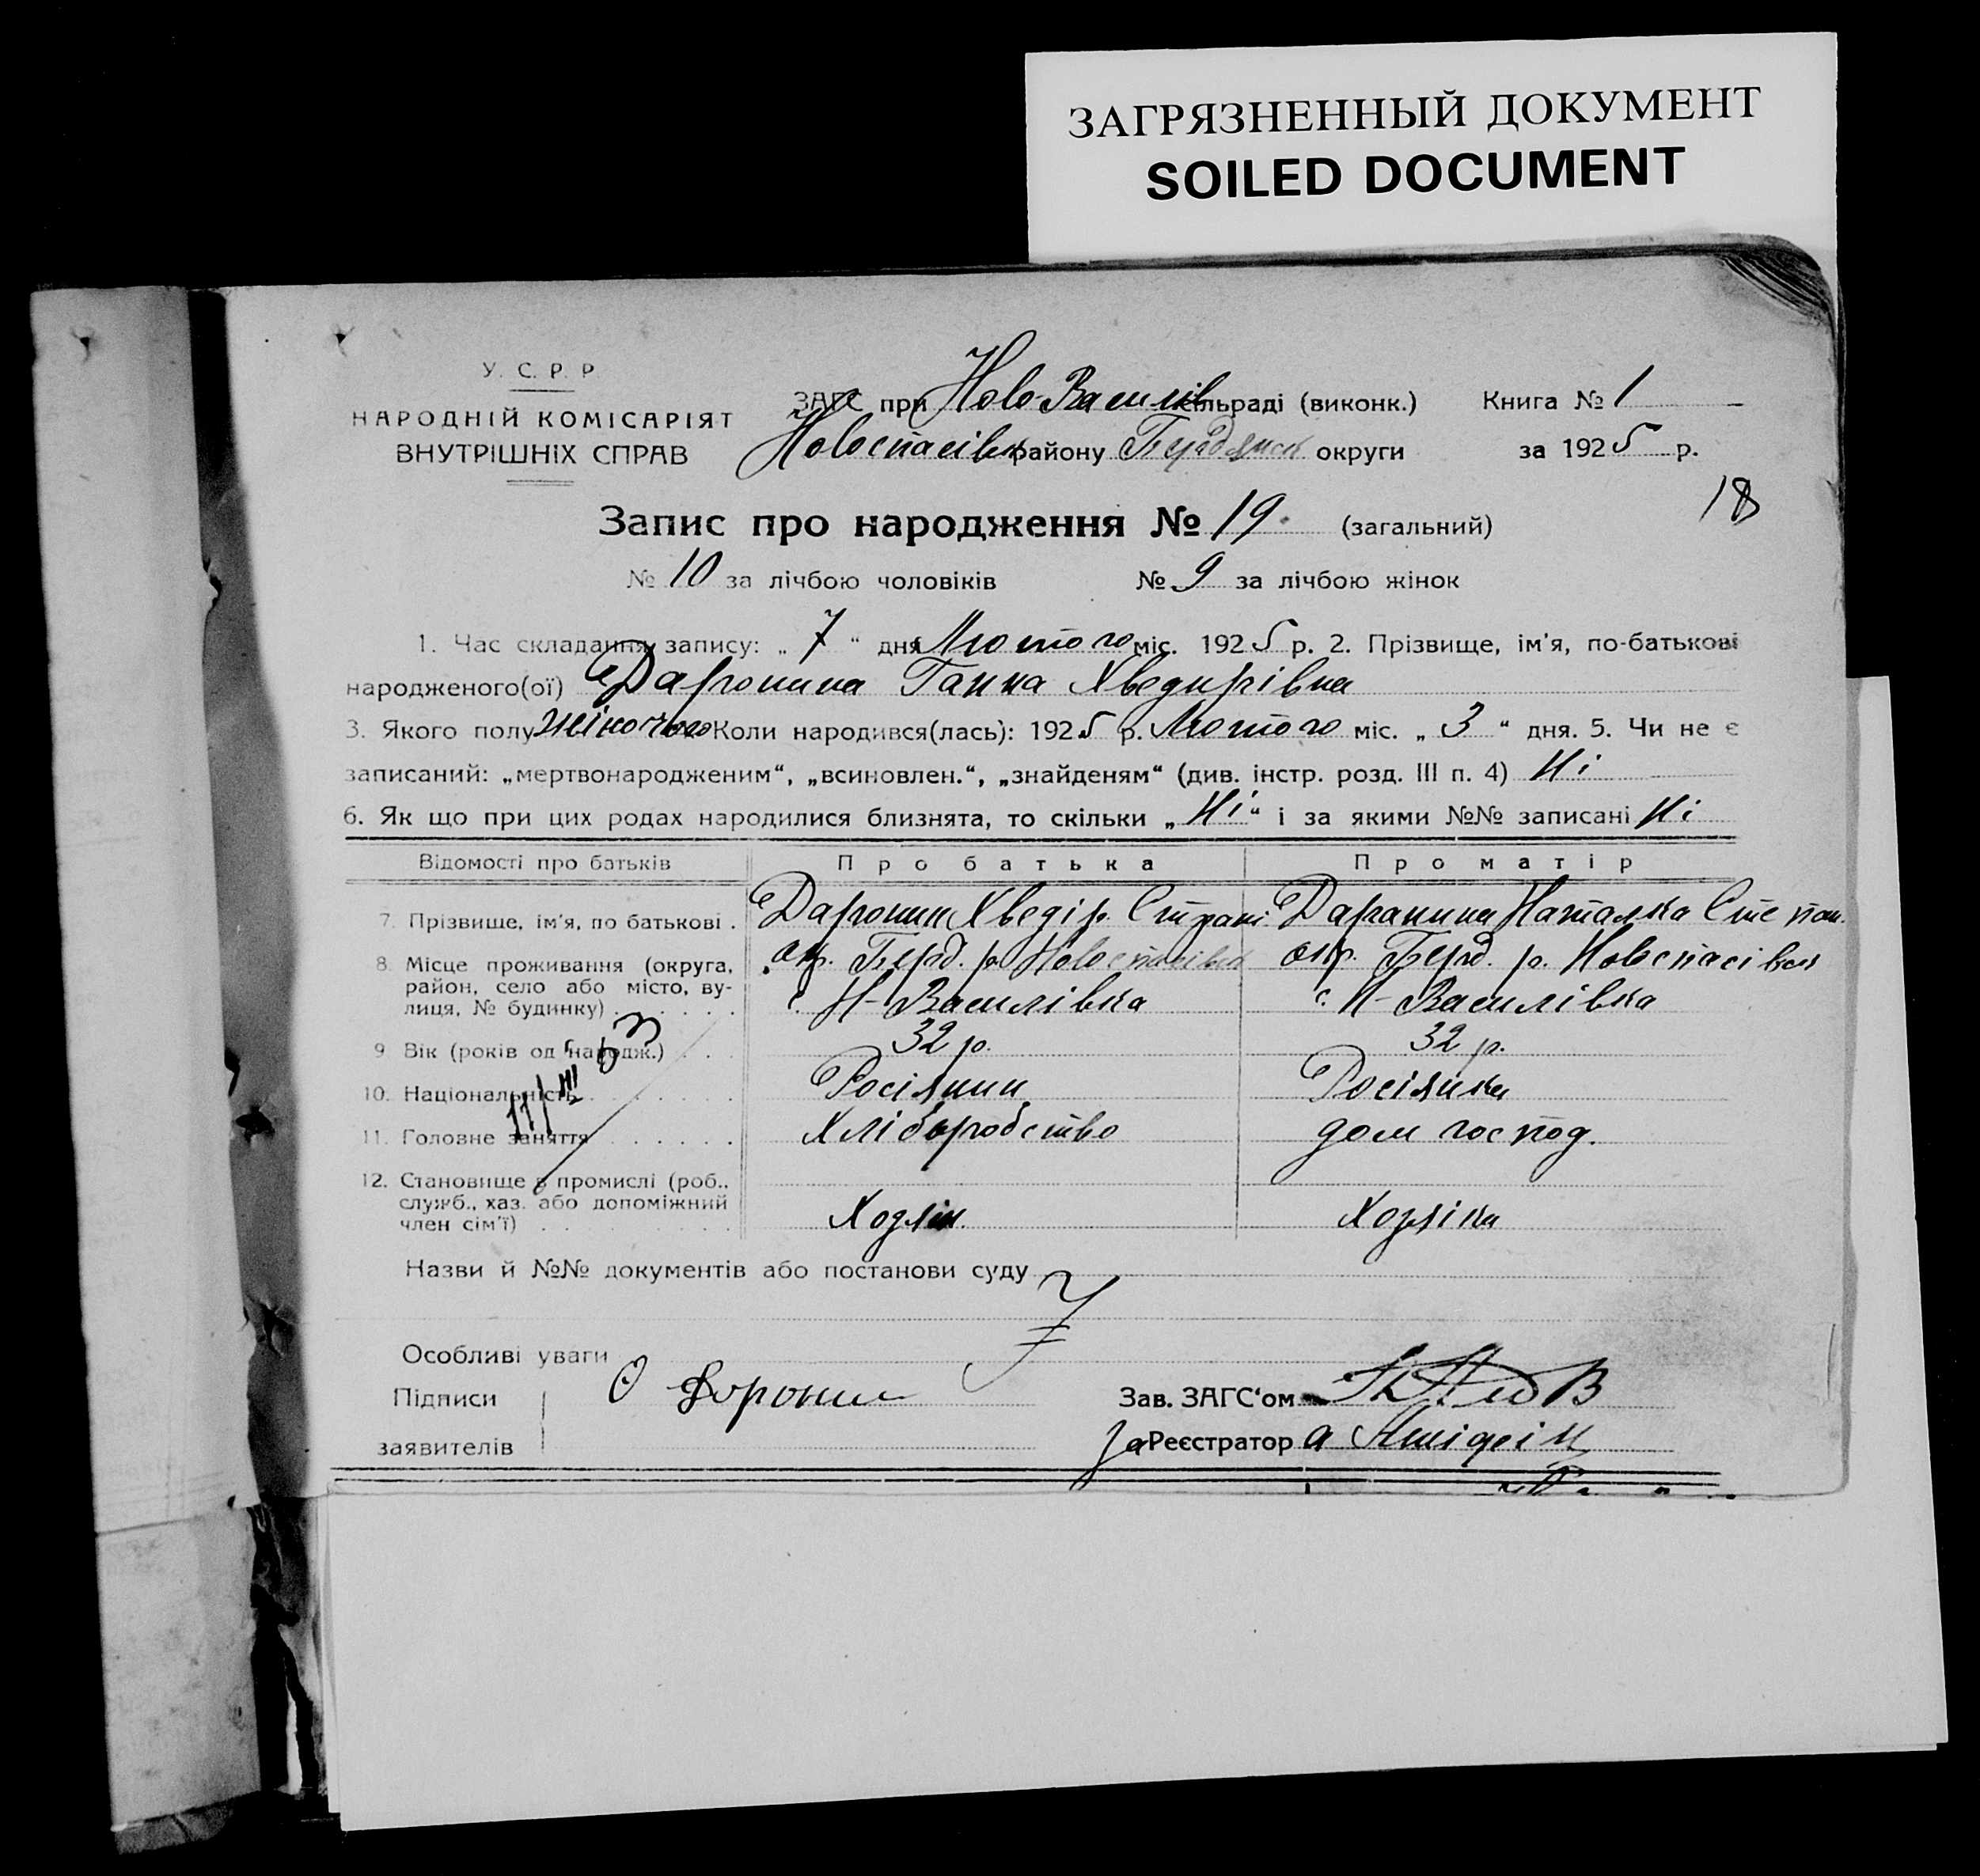 ЗАГРЯЗНЕННЫЙ ДОКУМЕНТ
SOILED DOCUMENT
У. С. Р. Р.
НАРОДНІЙ КОМІСАРІЯТ
ВНУТРІШНІХ СПРАВ
ЗАГС при Ново-Василів сільраді (виконк.) Книга № 1
Новоспасівк району Бердянськ округи за 1925 р.
18
Запис про народження № 19. (загальний)
№ 10 за лічбою чоловіків № 9 за лічбою жінок
1. Час складання запису: „ 7 “ дня Лютого міс. 1925 р. 2. Прізвище, ім'я, по-батькові
народженого(ої) Даронина Ганна Хведирівна
3. Якого полу жіночого Коли народився(лась): 1925 р. Лютого міс. „ 3 “ дня. 5. Чи не є
записаний: „мертвонародженим“, „всиновлен.“, „знайденям“ (див. інстр. розд. III п. 4) Ні
6. Як що при цих родах народилися близнята, то скільки „ Ні “ і за якими №№ записані Ні
Відомості про батьків Про батька Про матір
7. Прізвище, ім'я, по батькові . Даронин Хведір Даранина Наталка Степан.
8. Місце проживання (округа, окр. Берд. р. Новоспасівка окр. Берд. р. Новоспасівка
район, село або місто, ву-
лиця, № будинку) . . . . . . с. Н-Василівка с. Н-Василівка
9. Вік (років од народж.) . . . 32 р. 32 р.
10. Національність . . . . . . . Росіянин Росіянка
11. Головне заняття . . . . . . Хліборобство дом господ.
12. Становище в промислі (роб.,
служб., хаз. або допоміжний
член сім'ї) . . . . . . . . Хозяін Хозяіка
Назви й №№ документів або постанови суду
Особливі уваги
Підписи Доронин Зав. ЗАГС'ом
заявителів За Реєстратор а